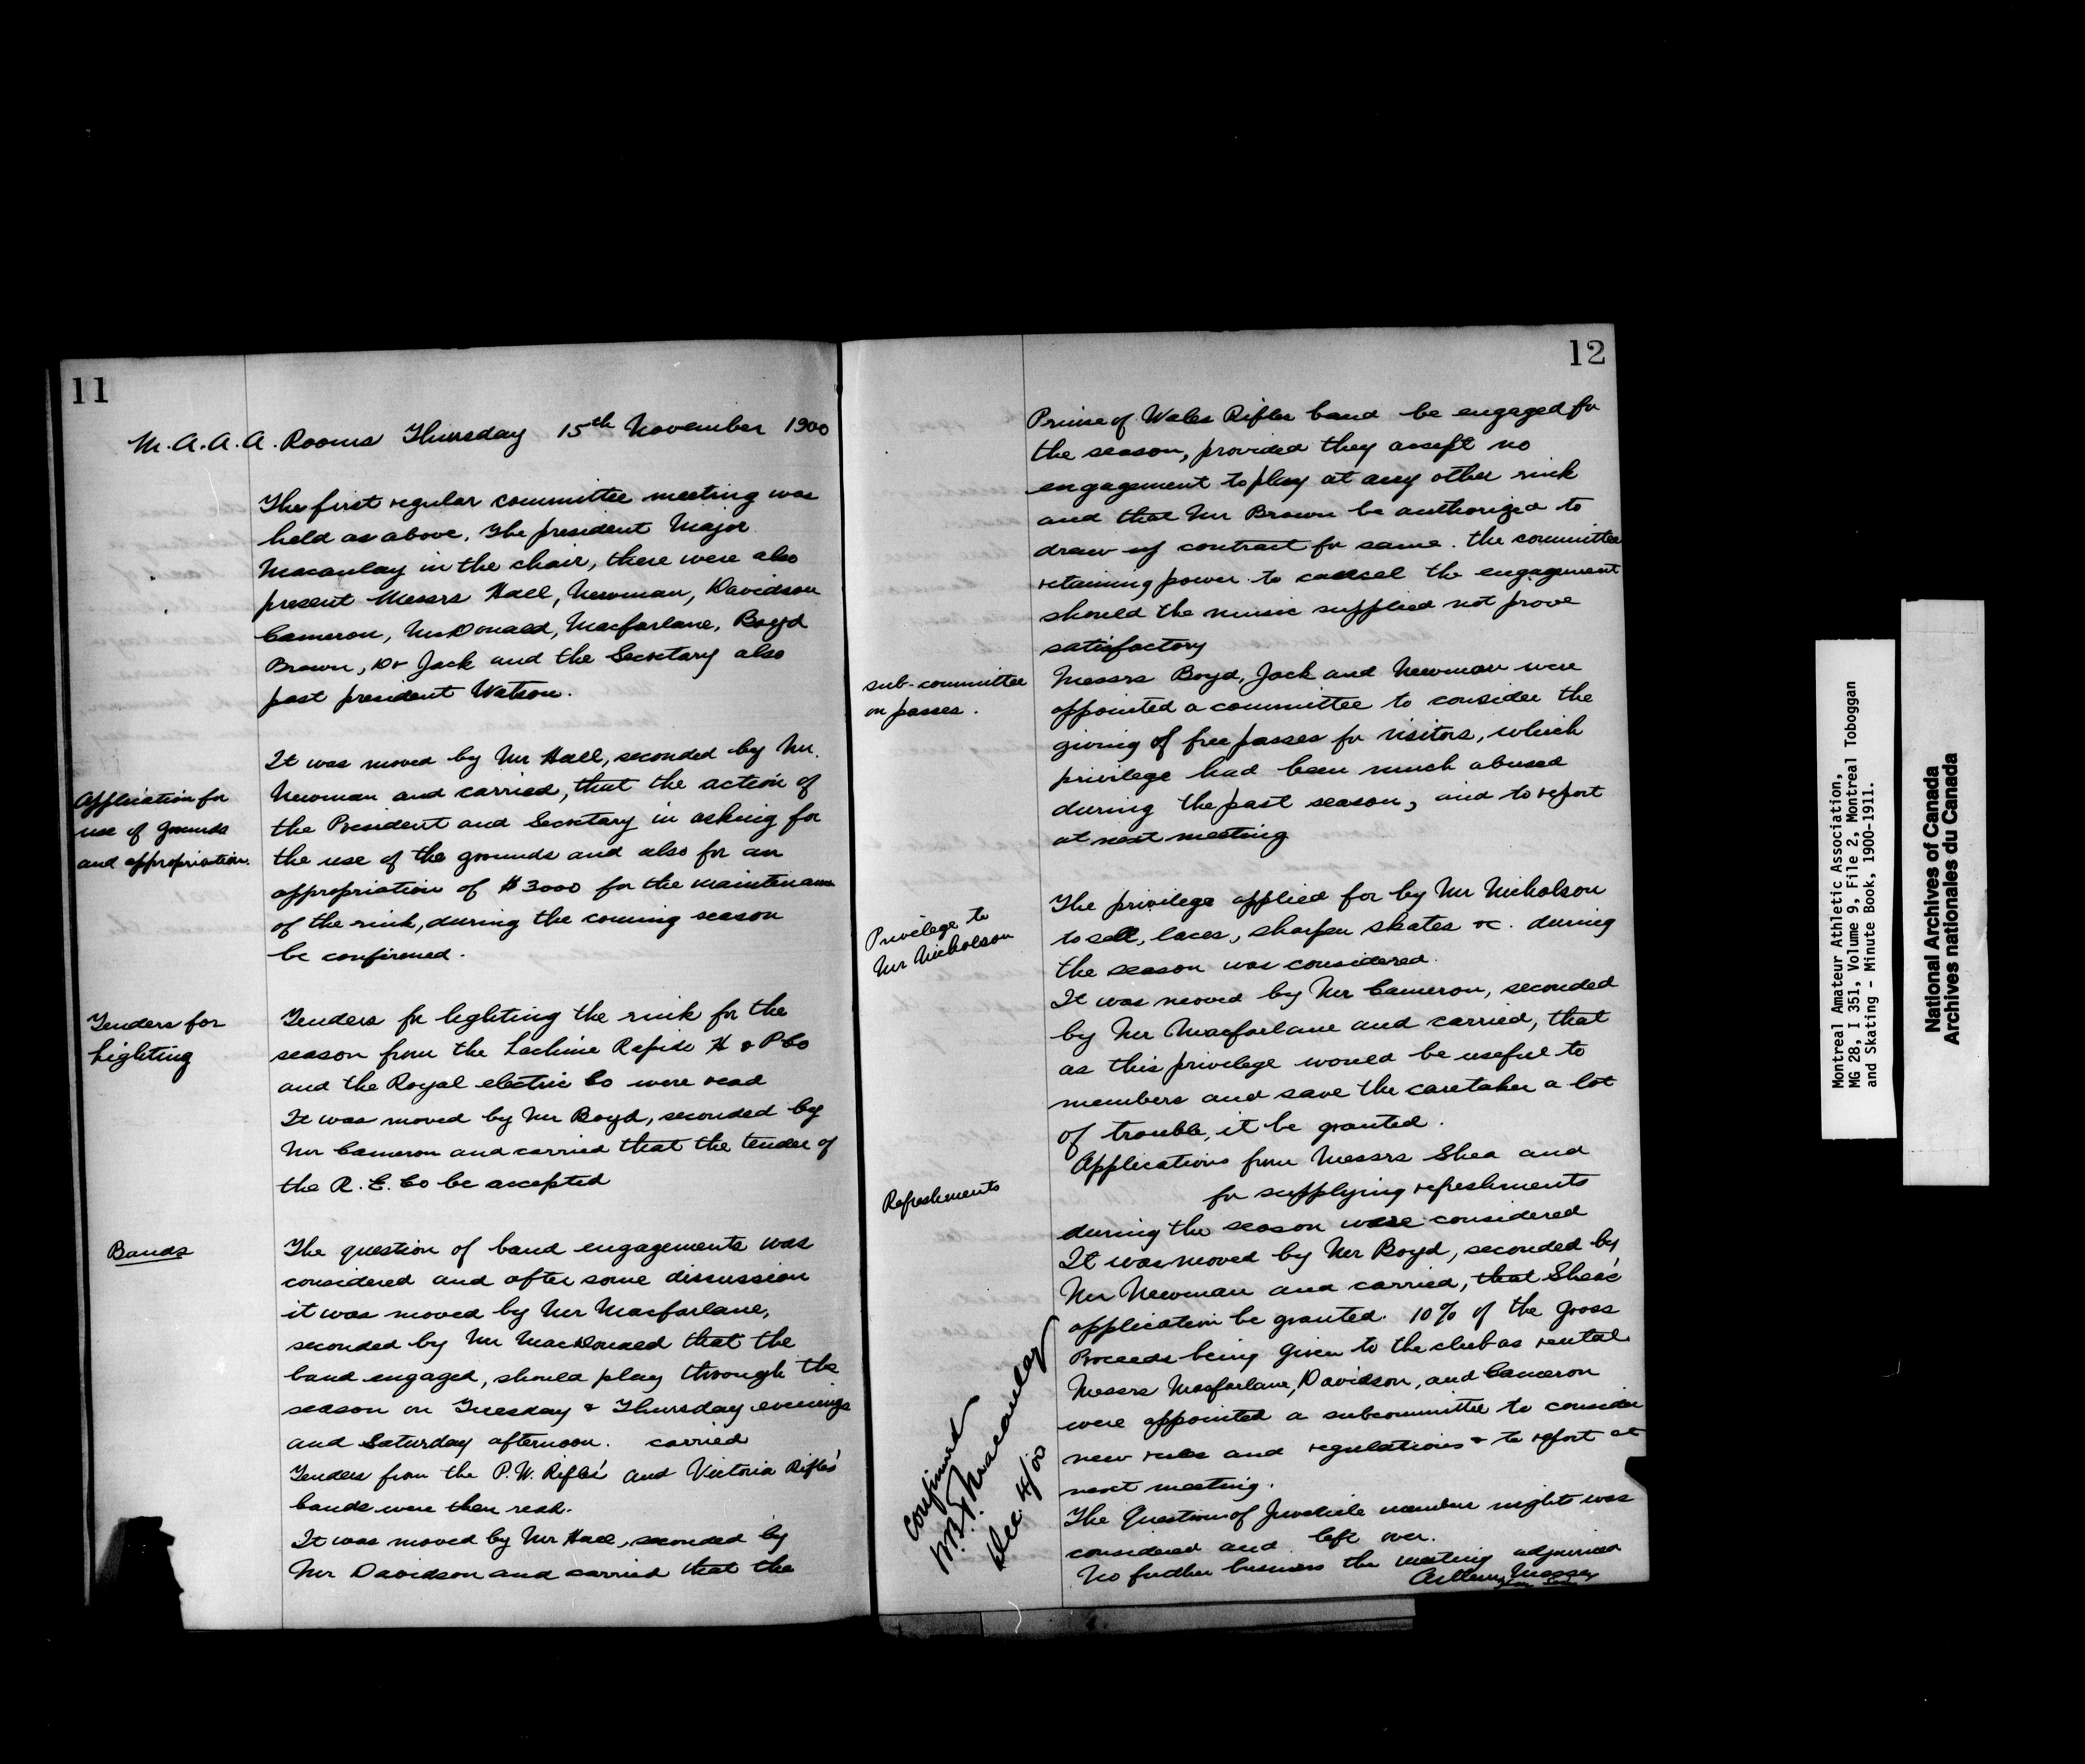 11
M.A.A.A. Rooms Thursday 15th November 1900
The first regular committee meeting was
held as above. The president Major
Macaulay in the chair, there were also
present Messrs Hall, Newman, Davidson
Cameron, McDonald, Macfarlane, Boyd
Brown, Dr Jack and the Secretary also
past president Watson.
Application for
use of grounds
and appropriation.
It was moved by Mr Hall, seconded by Mr.
Newman and carried, that the action of
the President and Secretary in asking for
the use of the grounds and also for an
appropriation of $3000 for the maintenance
of the rink, during the coming season
be confirmed.
Tenders for
Lighting
Tenders for lighting the rink for the
season from the Lachine Rapids H & P Co
and the Royal electric Co were read
It was moved by Mr Boyd, seconded by
Mr Cameron and carried that the tender of
the R. E. Co be accepted
Bands
The question of band engagements was
considered and after some discussion
it was moved by Mr Macfarlane,
seconded by Mr MacDonald that the
band engaged, should play through the
season on Tuesday & Thursday evenings
and Saturday afternoon. carried
Tenders from the P.W. Rifles' and Victoria Rifles'
bands were then read.
It was moved by Mr Hall, seconded by
Mr Davidson and carried that the
12
Prince of Wales Rifles band be engaged for
the season, provided they accept no
engagement to play at any other rink
and that Mr Brown be authorized to
draw up contract for same. the committee
retaining power to cancel the engagement
should the music supplied not prove
satisfactory
sub-committee
on passes.
Messrs Boyd, Jack and Newman were
appointed a committee to consider the
giving of free passes for visitors, which
privilege had been much abused
during the past season, and to report
at next meeting
Privilege to
Mr Nicholson
The privilege applied for by Mr Nicholson
to sell, laces, sharpen skates &c. during
the season was considered.
It was moved by Mr Cameron, seconded
by Mr Macfarlane and carried, that
as this privilege would be useful to
members and save the caretaker a lot
of trouble, it be granted.
Refreshments
Applications from Messrs Shea and
for supplying refreshments
during the season were considered
It was moved by Mr Boyd, seconded by
Mr Newman and carried, that Shea's
application be granted. 10% of the gross
Proceeds being given to the club as rental
Messrs Macfarlane, Davidson, and Cameron
were appointed a subcommittee to consider
new rules and regulations & to report at
next meeting.
The Question of Juvenile member nights was
considered and left over.
No further business the meeting adjourned
Confirmed
Macaulay
Dec. 4/00
Montreal Amateur Athletic Association,
MG 28, I 351, Volume 9, File 2, Montreal Toboggan
and Skating - Minute Book, 1900-1911.
National Archives of Canada
Archives nationales du Canada